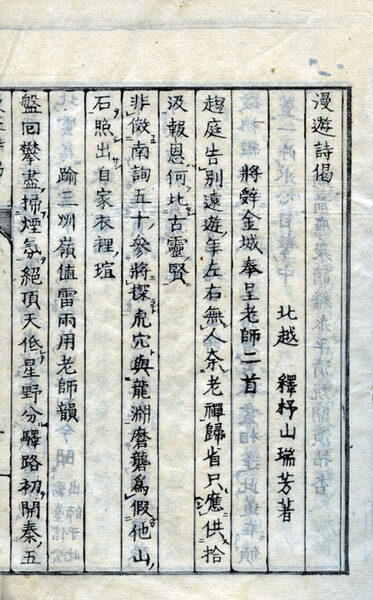 漫遊詩偈
北越 釋杼山瑞芳著
將辤金城奉呈老師二首
趨庭告別遠遊年左右無人奈老禪歸省只應供拾
汲報恩何比古靈賢
非倣南詢五十參將探虎穴與龍淵磨礱爲假他山
石照出自家衣裡瑄
踰三州嶺值雷雨用老師韻
盤回攀盡掃煙氛絕頂天低星野分驛路初開秦五